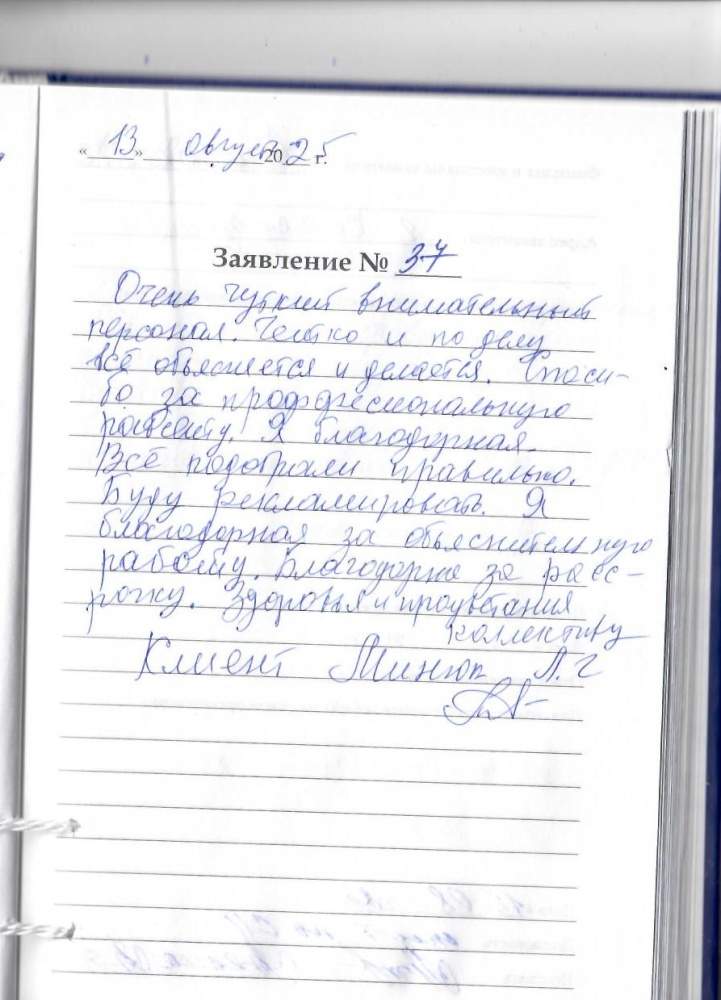 «13» август 2025 г.
Заявление № 37
Очень чуткий внимательный
персонал. Четко и по делу
всё объясняется и делается. Спаси-
бо за профдесиональную
работу. Я благодорная.
Всё подобрали правильно.
Буду рекламировать. Я
благодорная за объяснительную
работу. Благодорна за расс-
рочку. Здоровья и процветания
коллективу
Клиент Минюк Л. Г